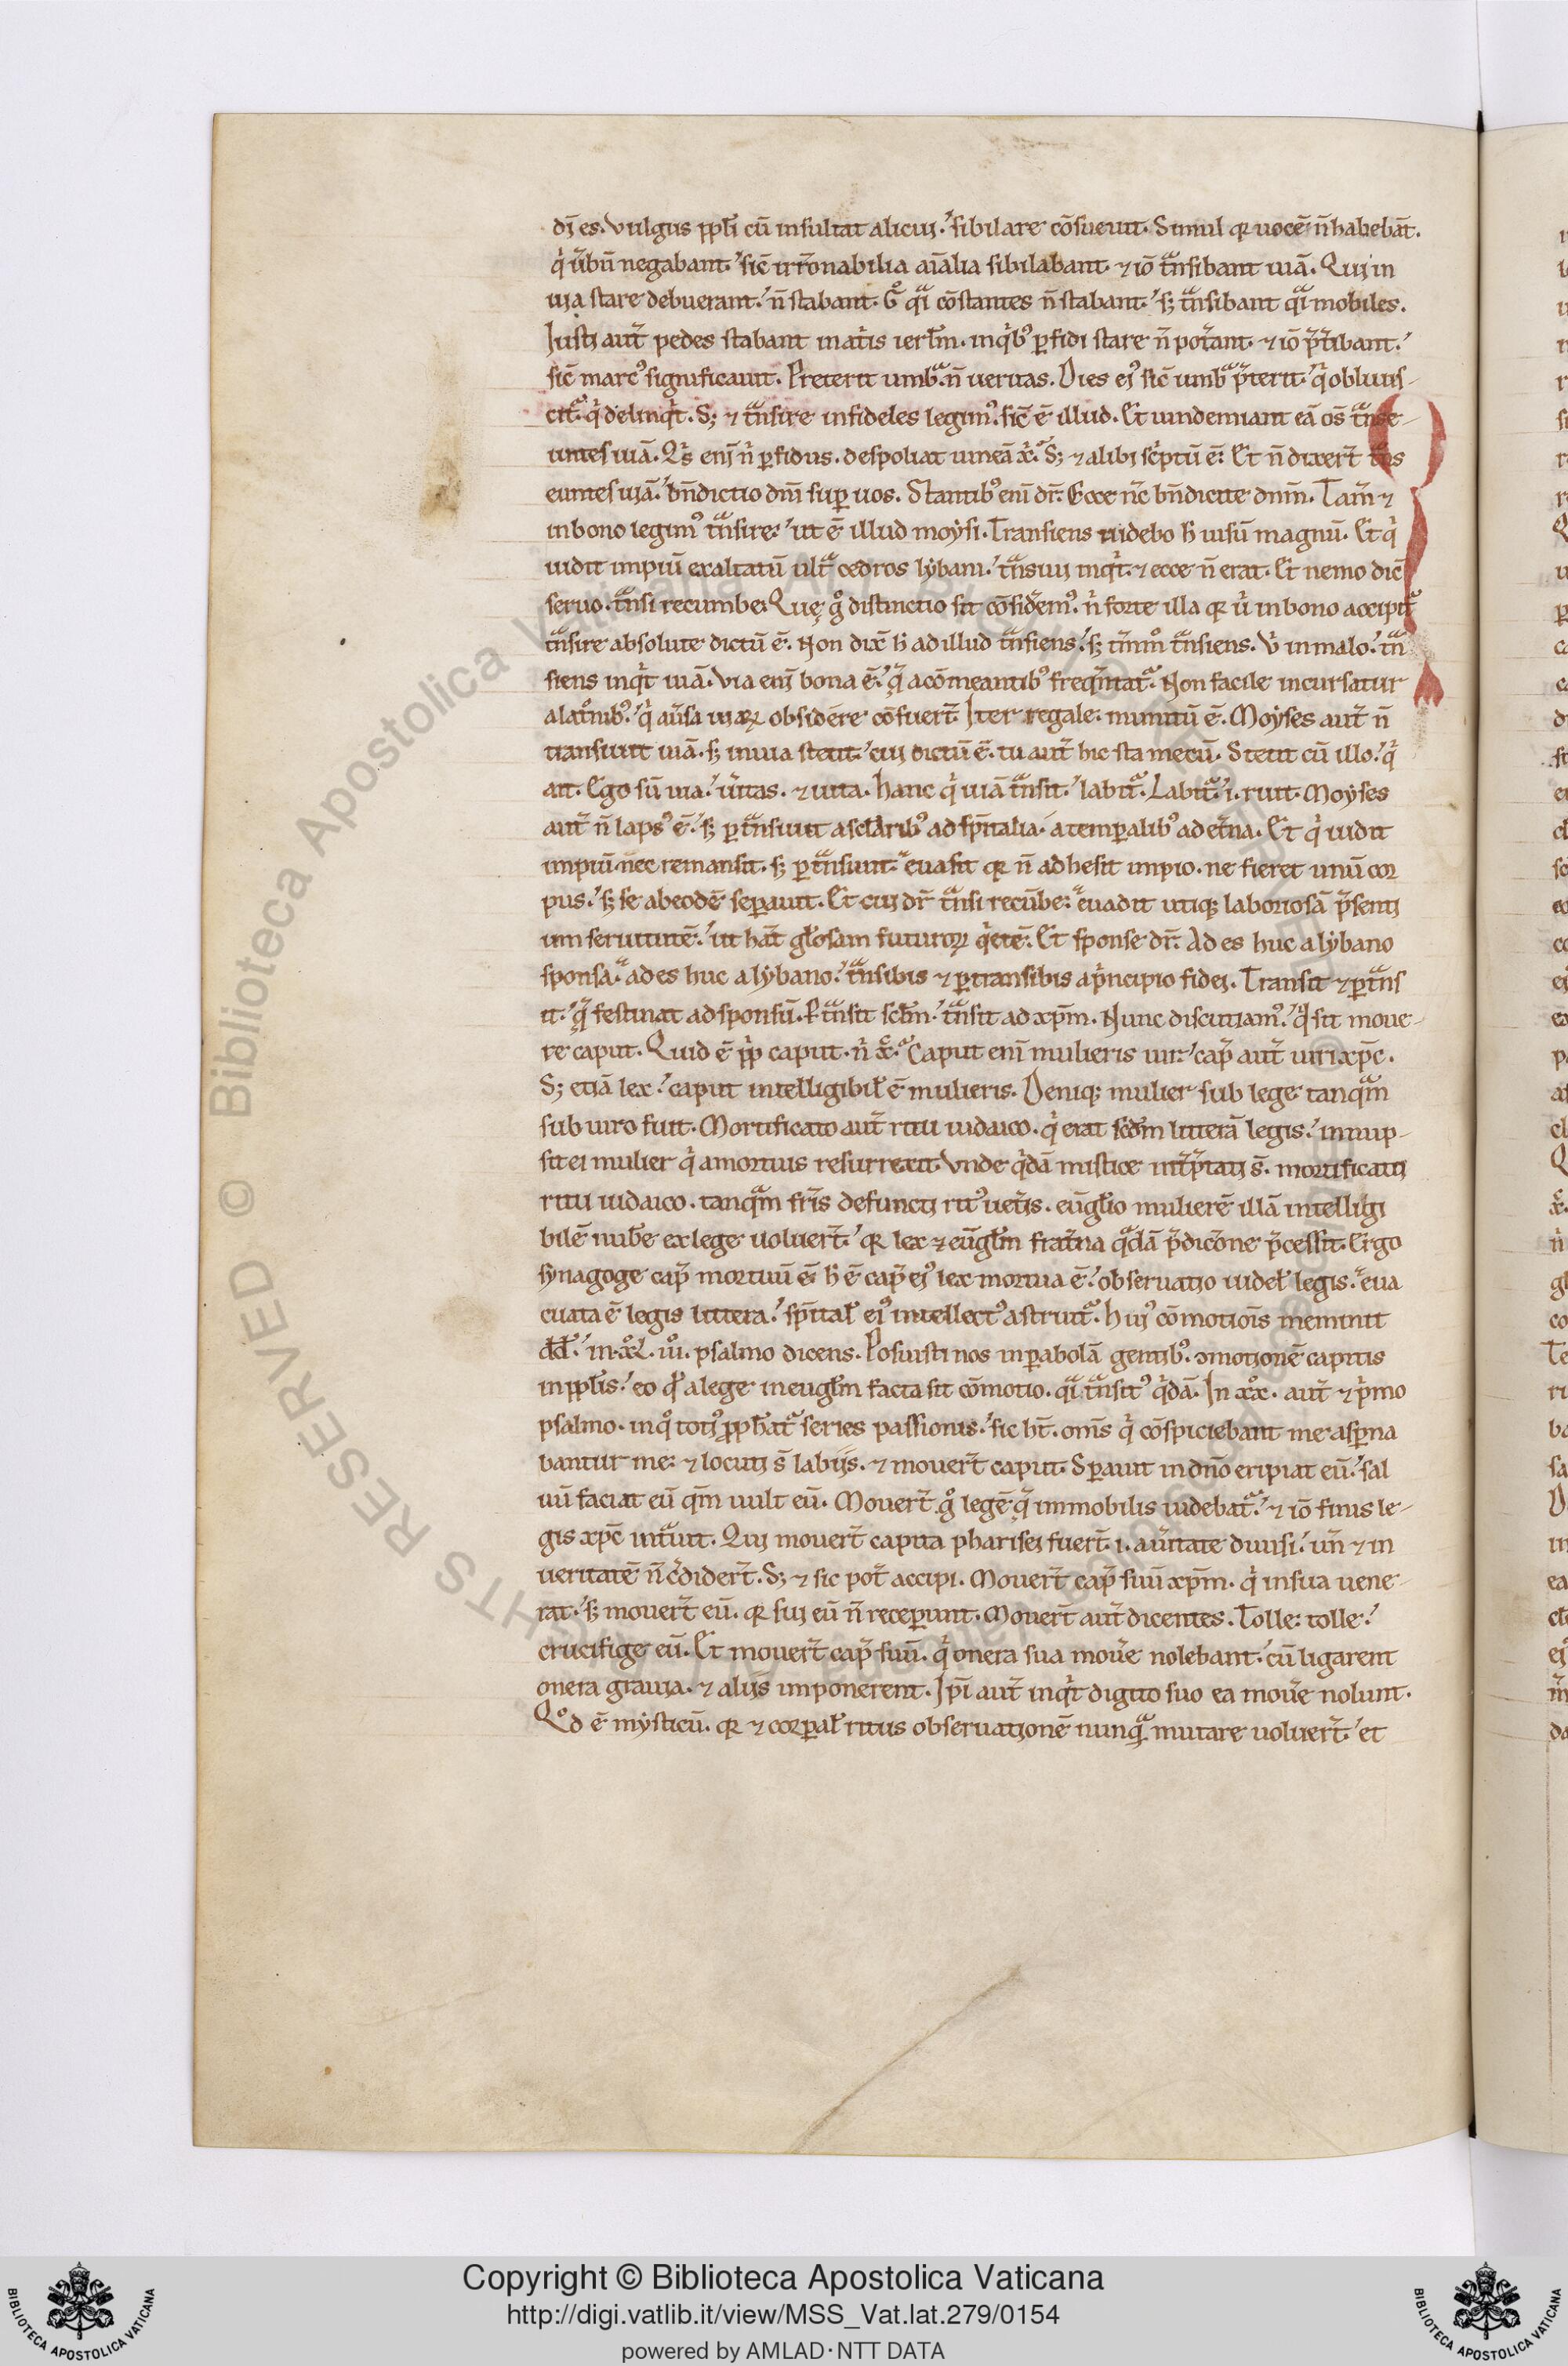 dī es. Vulgus ppłi cū insultat alicui. sibilare cōsueuit. Simul qr uocē n̄ habebāt.
q̇ u̇bū negabant. sic̄ irr̄onabilia aīalia sibilabant. ⁊ iō tͣnsibant uiā. Qui in
uia stare debuerant. n̄ stabant. Gͦ qͣi cōstantes n̄ stabant. sꝫ tͣnsibant qͣi mobiles.
Iusti aut̄ pedes stabant in atriis ierłm. in qͥbꝰ ꝑfidi stare n̄ poterant. ⁊ iō p̄teribant.
sic̄ marcꝰ significauit. Preterit umbͣ. n̄ ueritas. Dies eiꝰ sic̄ umbͣ p̄terit. qͥ obliuis-
citͬ. qͥ delinqͥt. Sꝫ ⁊ tͣnsire infideles legimꝰ. sic̄ ē illud. Et uindemiant eā oēs tͣnse-
untes uiā. Qͥs eni n̄ ꝑfidus. despoliat uineā x̄ᵢ. Sꝫ ⁊ alibi scͥptū ē. Et n̄ dixert̄ tͣns
euntes uiā. bn̄dictio dn̄i suꝑ uos. Stantibꝰ enī dr̄. Ecce nc̄ bn̄dicite dnm̄. Tam̄ ⁊
in bono legimꝰ tͣnsire. ut ē illud moẏsi. Transiens uidebo h̄ uisū magnū. Et qͥ
uidit impiū exaltatū ultͣ cedros lẏbani. tͣnsiui inqͥt. ⁊ ecce n̄ erat. Et nemo dic̄
seruo. tͣnsi recumbe. Quę gͦ distinctio sit cōsidemꝰ. n̄ forte illa qr ů in bono accipitͬ
tͣnsire absolute dictū ē. Non dix̄ h̄ ad illud tͣnsiens. sꝫ tm̄mͦ tͣnsiens. V̊ in malo. tͣn
siens inqͥt uiā. Via eni bona ē. qͣ a cōmeantibꝰ freqn̄tatͬ. Non facile incursatur
a latͦnibꝰ. qͥ au̇sa uiaꝝ obsidere cōsuert̄. Iter regale. munitū ē. Moẏses aut̄ n̄
transiuit uiā. sꝫ in uia stetit. cui dictū ē. tu aut̄ hic sta mecū. Stetit cū illo. qͥ
ait. Ego sū uia. u̇itas. ⁊ uita. Hanc qͥ uiā tͣnsit. labitͬ. Labitͬ. i. ruit. Moẏses
aut̄ n̄ lapsꝰ ē. sꝫ ꝑtͣnsiuit a sclarìbꝰ ad sp̄italia. a temꝑalibꝰ ad et̄na. Et qͥ uidit
impiū nec remansit. sꝫ ꝑtͣnsiuit. euasit qr n̄ adhesit impio. ne fieret unū cor
pus. sꝫ se ab eodē seꝑauit. Et cui dr̄ tͣnsi recūbe. euadit utiqꝫ laboriosā p̄senti
um seruitutē. ut hāt glosam futuroꝝ qͥetē. Et sponse dr̄. Ad es huc a lẏbano
sponsa. ad es huc a lẏbano. tͣnsibis ⁊ ꝑtransibis a pͥncipio fidei. Transit ⁊ ꝑtͣns
it. qͣ festinat ad sponsū. ꝑtͣnsit sc̄łm. tͣnsit ad xp̄m. Nunc discutiamꝰ. qͥ sit moue-
re caput. Quid ē pp̄ caput. n̄ x̄c. Caput eni mulieris uir. cap̄ aut̄ uiri xp̄c.
Sꝫ etiā lex. caput intelligibilꝭ ē mulieris. Deniqꝫ mulier sub lege tanqͣm
sub uiro fuit. Mortificato aut̄ ritu iudaico. qͥ erat scd̄m litterā legis. innup-
sit ei mulier qͥ a mortuis resurrexit. Vnde qͥdā mistice intp̄tati s̄. mortificati
ritu iudaico. tanqͣm frīs defuncti ritꝰ uetis. eūglio mulierē illā intelligi
bilē nubē ex lege uoluert̄. qr lex ⁊ eūglm̄ fratna qͣdā p̄dicōne p̄cessit. Ergo
sẏnagoge cap̄ mortuū ē. h̄ ē cap̄ eiꝰ lex mortua ē. obseruatio uidelꝫ legis. eua
cuata ē legis littera. sp̄italꝭ eiꝰ intellectꝰ astruitͬ. Huiꝰ cōmotiōis meminit
dd̄. in .xͦL.iiiͦ. psalmo dicens. Posuisti nos in ꝑabolā gentibꝰ. ↄmotionē capitis
in ppłis. eo qͦ a lege in euglm̄ facta sit cōmotio. qͣi tͣnsitꝰ qͥdā. In xͦx. aut̄ ⁊ pͥmo
psalmo. in qͦ totiꝰ ꝓph̄atͬ series passionis. sic ht̄. omīs qͥ cōspiciebant me aspna
bantur me. ⁊ locuti s̄ labiis. ⁊ mouert̄ caput. Sꝑauit in dn̄o eripiat eū. sal
uū faciat eū qm̄ uult eū. Mouert̄ gͦ legē qͣ immobilis uidebatͬ. ⁊ iō finis le-
gis xp̄c intͣuit. Qui mouert̄ capita pharisei fuert̄. i. a u̇itate diuisi. un̄ ⁊ in
ueritatē n̄ cͥdidert̄. Sꝫ ⁊ sic pot̄ accipi. Mouert̄ cap̄ suū xp̄m. qͥ in sua uene-
rat. sꝫ mouert̄ eū. qr sui eū n̄ receꝑunt. Mouert̄ aut̄ dicentes. Tolle. tolle.
crucifige eū. Et mouert̄ cap̄ suū. qͥ onera sua mou̇e nolebant. cū ligarent
onera grauia. ⁊ aliis imponerent. Ipī aut̄ inqͥt digito suo ea mou̇e nolunt.
Qͦd ē mẏsticū. qr ⁊ corꝑalꝭ ritus obseruationē nunqͣ mutare uoluert̄. et
Copyright © Biblioteca Apostolica Vaticana
http://digi.vatlib.it/view/MSS_Vat.lat.279/0154
powered by AMLAD·NTT DATA
BIBLIOTECA APOSTOLICA VATICANA
BIBLIOTECA APOSTOLICA VATICANA